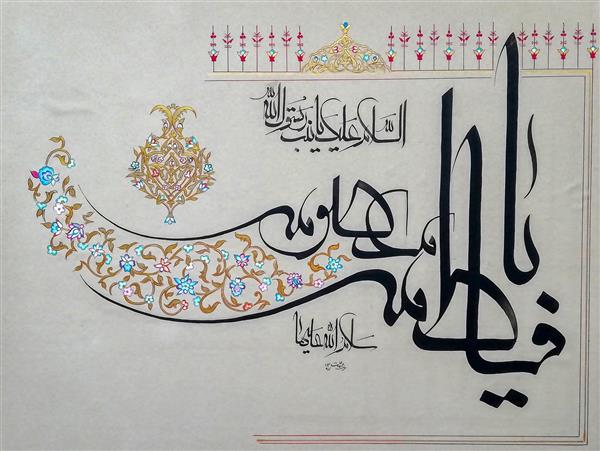 السلام علیک یا بنت رسول الله
یا فاطمه معصومه
سلام الله علیها